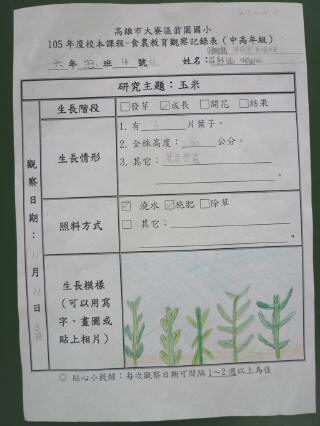 高雄市大寮區翁園國小
105年度校本課程-食農教育觀察記錄表(中高年級)
六年 班 4 號 姓名:
研究主題:玉米
觀察日期:11月11日
生長階段 □發芽 ☑成長 □開花 □結果
生長情形
1. 有 片葉子。
2. 全株高度: 公分。
3. 其它:
。
照料方式 ☑ 澆水 ☑施肥 □除草
□ 其它:
。
生長模樣
(可以用寫
字、畫圖或
貼上相片)
◎ 貼心小提醒:每次觀察日期可間隔 1~2 週以上為佳